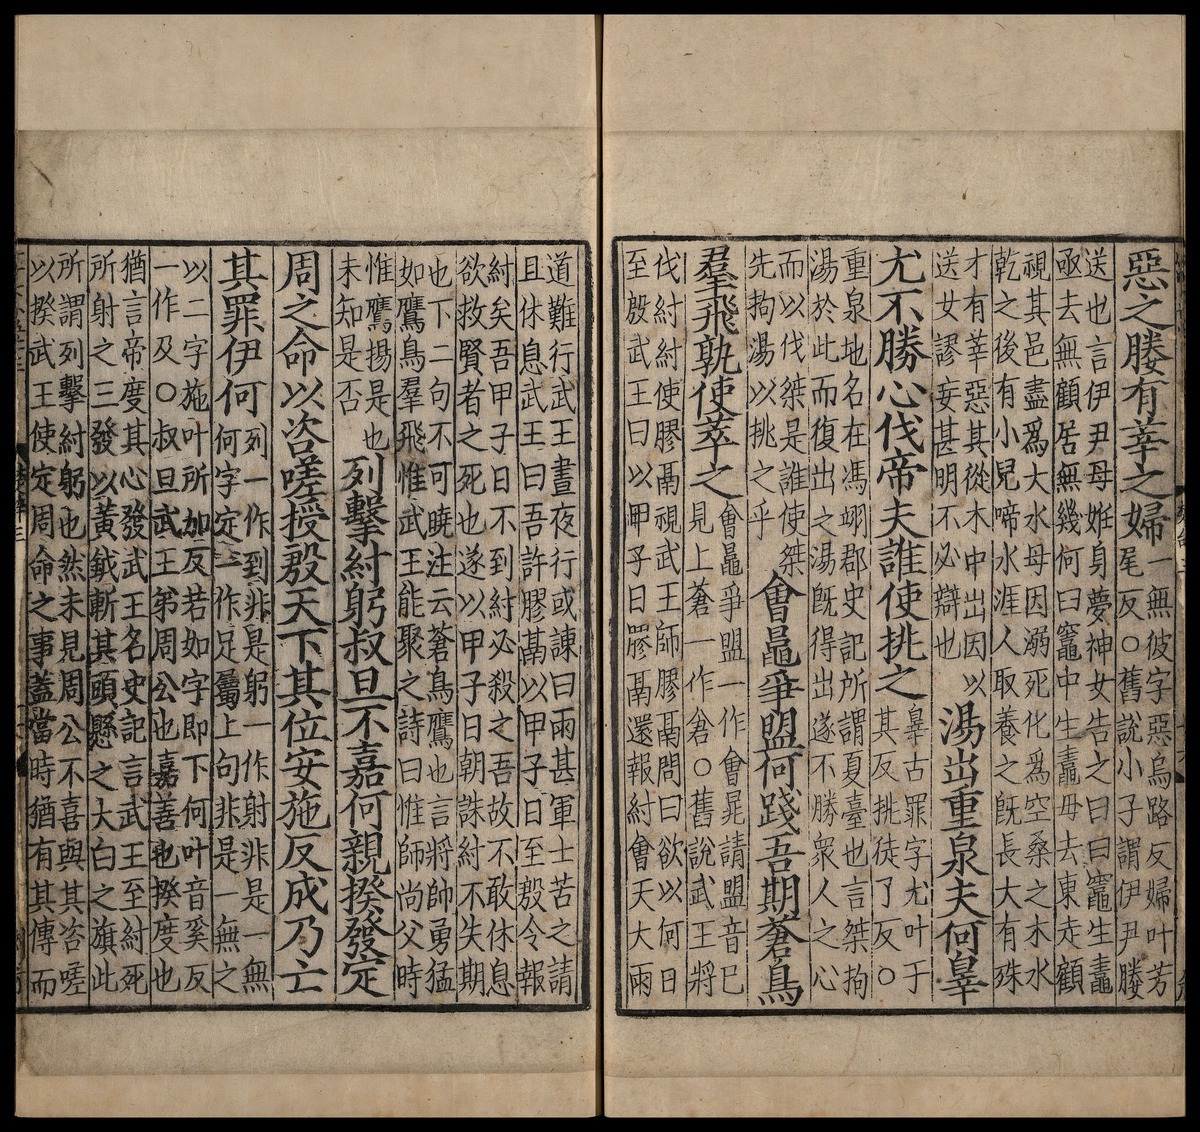 惡之媵有莘之婦一無彼字惡烏路反婦叶芳
尾反○舊說小子謂伊尹媵
送也言伊尹母姙身夢神女告之曰曰竈生鼃
亟去無顧居無幾何曰竈中生鼃母去東走顧
視其邑盡爲大水母因溺死化爲空桑之木水
乾之後有小兒啼水涯人取養之旣長大有殊
才有莘惡其從木中出因以
送女謬妄甚明不必辯也
湯出重泉夫何辠
尤不勝心伐帝夫誰使挑之辠古罪字尤叶于
其反挑徒了反○
重泉地名在馮翊郡史記所謂夏臺也言桀拘
湯於此而復出之湯旣得出遂不勝衆人之心
而以伐桀是誰使桀
先拘湯以挑之乎
會鼂爭盟何踐吾期蒼鳥
羣飛孰使萃之會鼂爭盟一作會晁請盟音巳
見上蒼一作倉○舊說武王將
伐紂紂使膠鬲視武王師膠鬲問曰欲以何日
至殷武王曰以甲子日膠鬲還報紂會天大雨
道難行武王晝夜行或諫曰雨甚軍士苦之請
且休息武王曰吾許膠鬲以甲子日至殷令報
紂矣吾甲子日不到紂必殺之吾故不敢休息
欲救賢者之死也遂以甲子日朝誅紂不失期
也下二句不可曉注云蒼鳥鷹也言將帥勇猛
如鷹鳥羣飛惟武王能聚之詩曰惟師尚父時
惟鷹揚是也
未知是否
列擊紂躬叔旦不嘉何親揆發定
周之命以咨嗟授殷天下其位安施反成乃亡
其罪伊何列一作到非是躬一作射非是一無
何字定一作足屬上句非是一無之
以二字施叶所加反若如字即下何叶音奚反
一作及○叔旦武王弟周公也嘉善也揆度也
猶言帝度其心發武王名史記言武王至紂死
所射之三發以黃鉞斬其頭懸之大白之旗此
所謂列擊紂躬也然未見周公不喜與其咨嗟
以揆武王使定周命之事蓋當時猶有其傳而